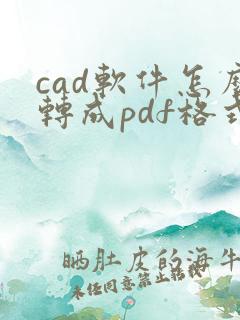 cad軟件怎麼
轉成pdf格式
晒肚皮的海牛
未经同意禁止转载